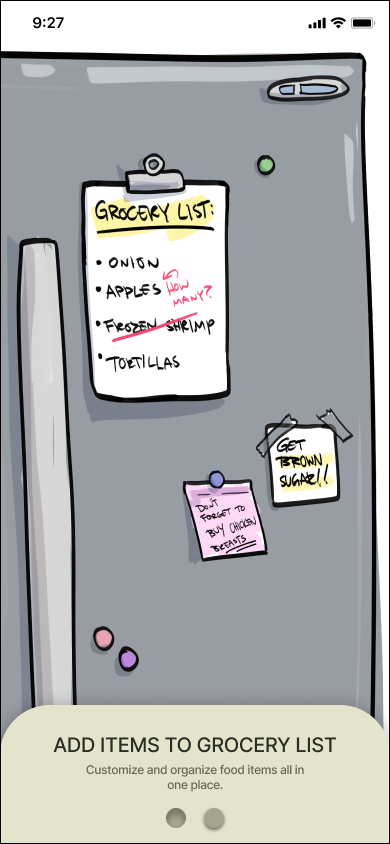 9:27
GROCERY LIST:
• ONION
• APPLES HOW
MANY?
• FROZEN SHRIMP
• TORTILLAS
GET
BROWN
SUGAR!!
DON'T
FORGET TO
BUY CHICKEN
BREASTS
ADD ITEMS TO GROCERY LIST
Customize and organize food items all in
one place.